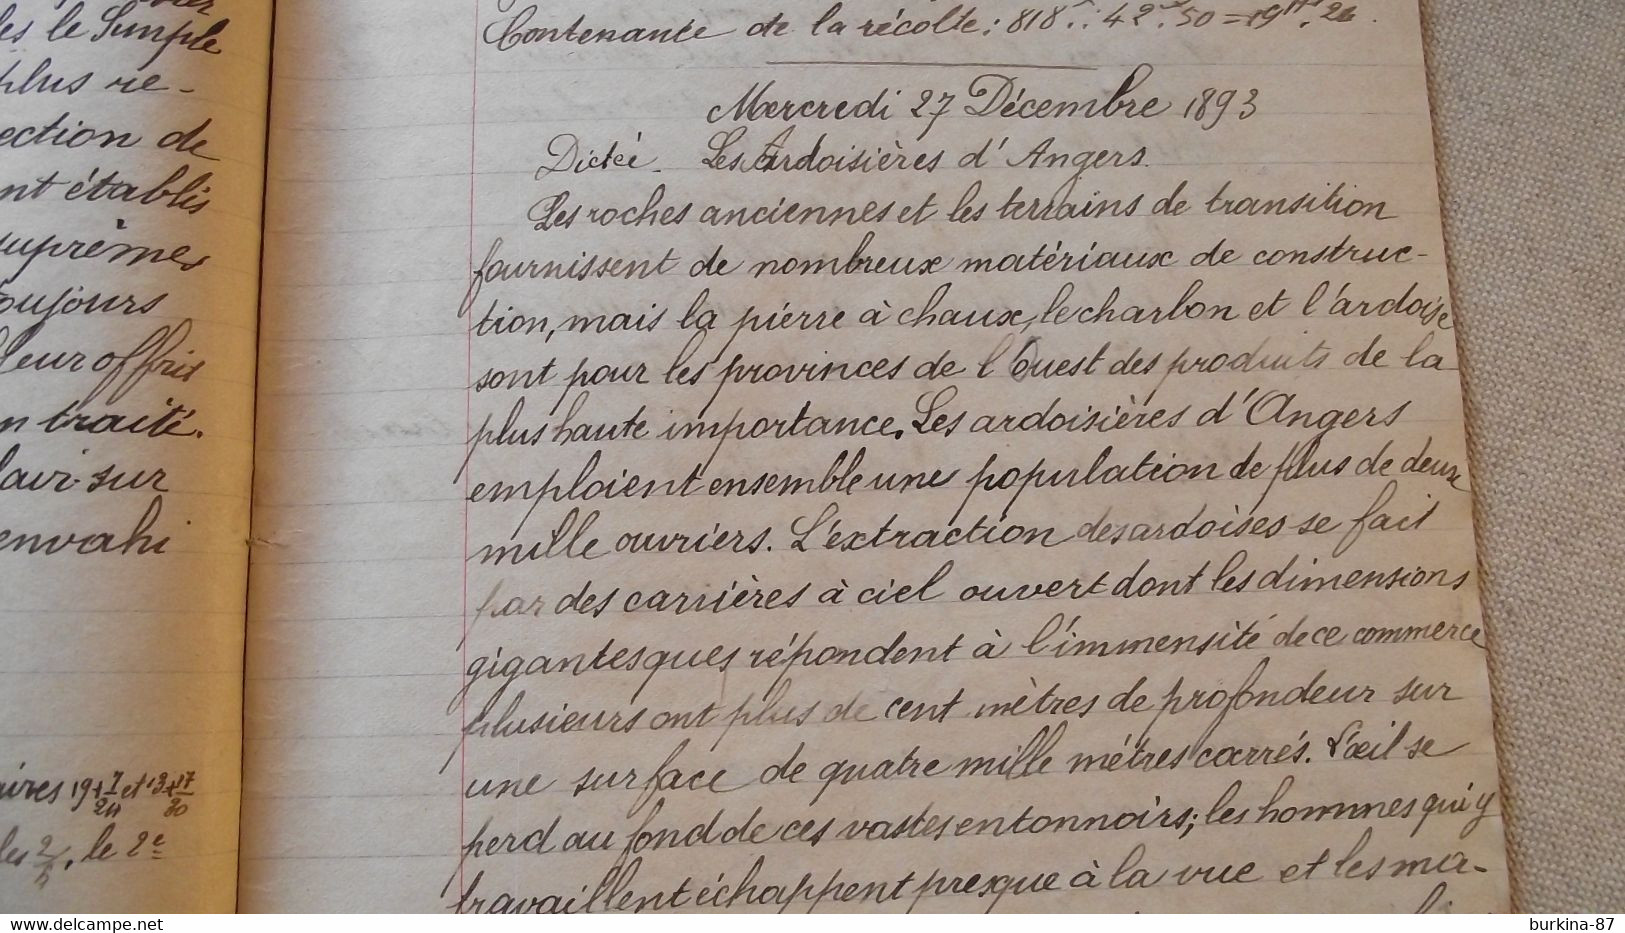 les le Simple
plus re-
ection de
nt établis
suprêmes
oujours
leur offrit
n traité.
sur
envahi
aires 19+7/24 et 13+17/30
les 2/ , le 2e
Contenante de la récolte: 818 : 42 . 50 = 19
Mercredi 27 Décembre 1893
Dictée. Les Ardoisières d'Angers.
Les roches anciennes et les terrains de transition
fournissent de nombreux matériaux de construc-
tion, mais la pierre à chaux, le charbon et l'ardoise
sont pour les provinces de l'Ouest des produits de la
plus haute importance. Les ardoisières d'Angers
emploient ensemble une population de plus de deux
mille ouvriers. L'extraction des ardoises se fait
par des carrières à ciel ouvert dont les dimensions
gigantesques répondent à l'immensité de ce commerce
plusieurs ont plus de cent mètres de profondeur sur
une surface de quatre mille mètres carrés. L'œil se
perd au fond de ces vastes entonnoirs; les hommes qui y
travaillent échappent presque à la vue et les ma-
www.delcampe.net
burkina-87